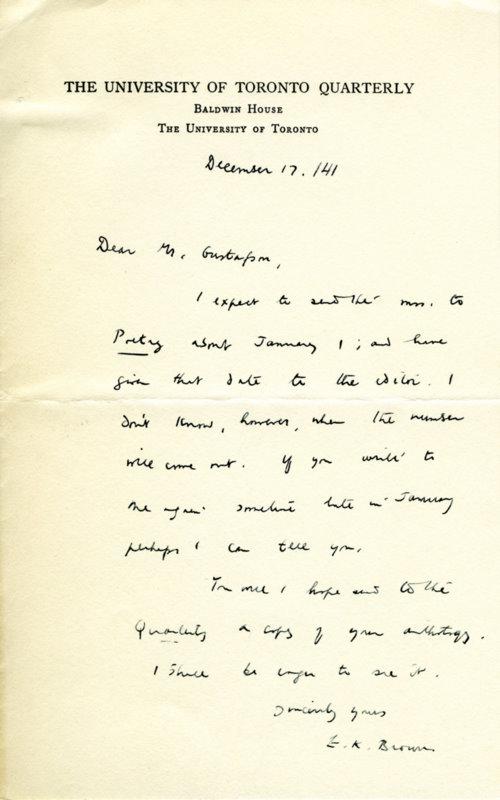 THE UNIVERSITY OF TORONTO QUARTERLY
BALDWIN HOUSE
THE UNIVERSITY OF TORONTO
December 17. /41
Dear Mr. Gustafson,
I expect to send the mss. to
Poetry about January 1; and have
given that date to the editor. I
don't know, however, when the number
will come out. If you write to
me again sometime late in January
perhaps I can tell you.
You will I hope send to the
Quarterly a copy of your anthology.
I shall be eager to see it.
Sincerely yours
E. K. Brown